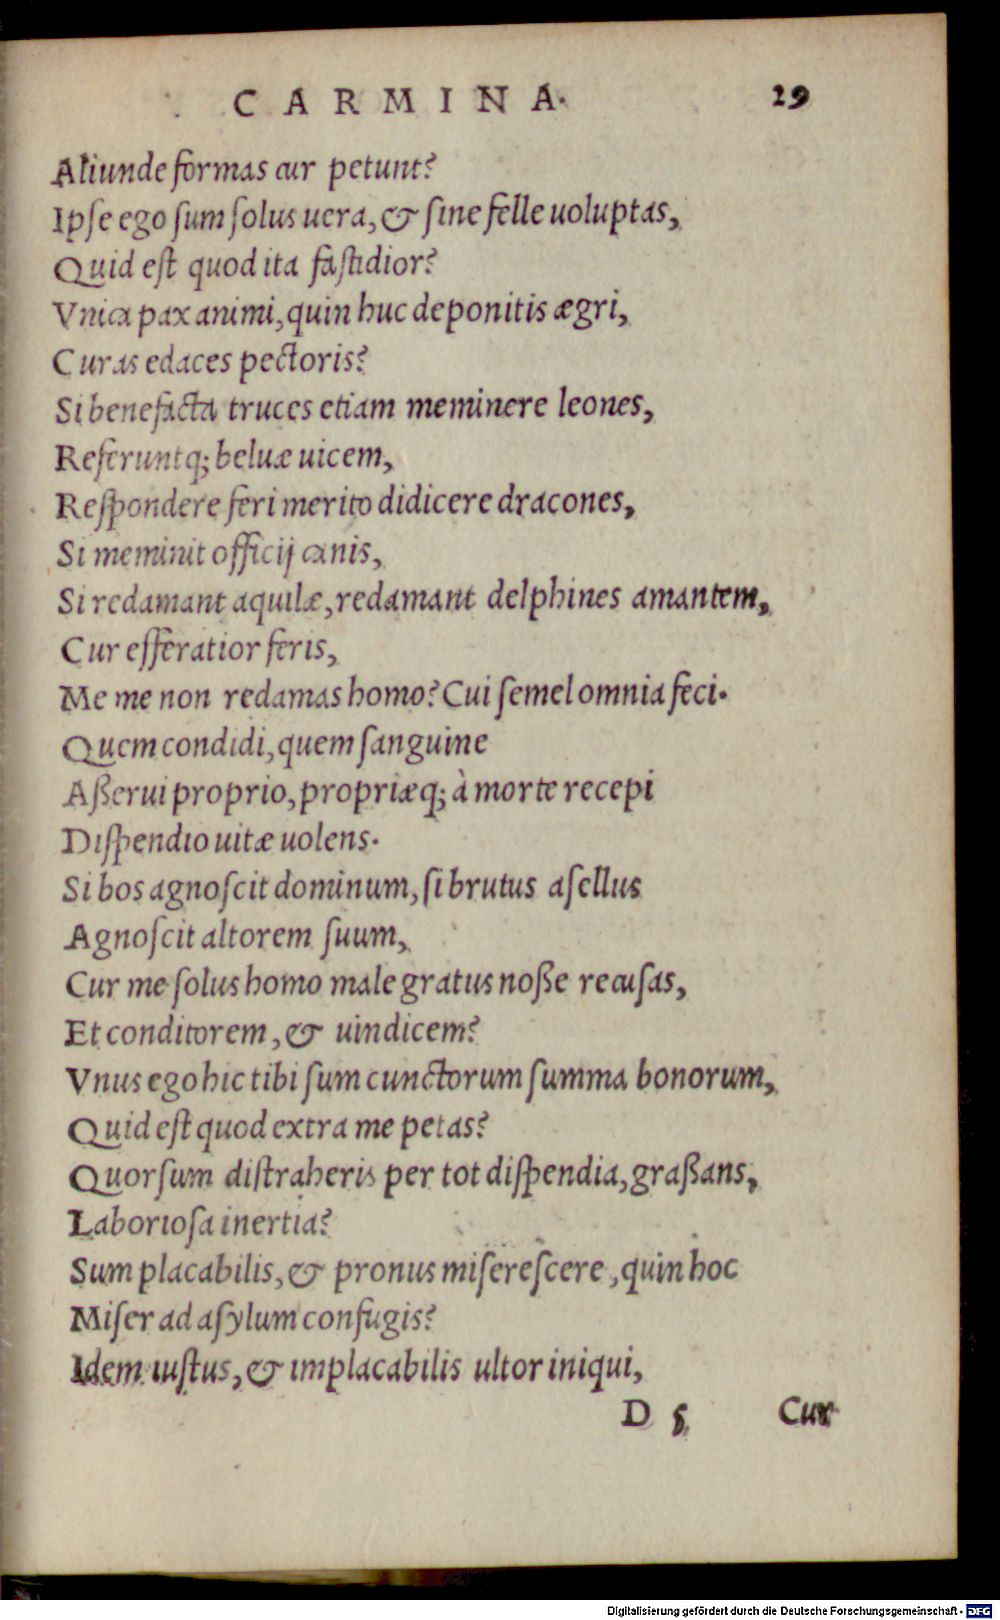 CARMINA. 29
Aliunde formas cur petunt?
Ipſe ego ſum ſolus uera, & ſine felle uoluptas,
Quid eſt quod ita faſtidior?
Vnica pax animi, quin huc deponitis ægri,
Curas edaces pectoris?
Si benefacta truces etiam meminere leones,
Referuntq; beluæ uicem,
Reſpondere feri merito didicere dracones,
Si meminit officij canis,
Si redamant aquilæ, redamant delphines amantem,
Cur efferatior feris,
Me me non redamas homo? Cui ſemel omnia feci.
Quem condidi, quem ſanguine
Aßerui proprio, propriæq; à morte recepi
Diſpendio uitæ uolens.
Si bos agnoſcit dominum, ſi brutus aſellus
Agnoſcit altorem ſuum,
Cur me ſolus homo male gratus noße recuſas,
Et conditorem, & uindicem?
Vnus ego hic tibi ſum cunctorum ſumma bonorum,
Quid eſt quod extra me petas?
Quorſum diſtraheris per tot diſpendia, graßans,
Laborioſa inertia?
Sum placabilis, & pronus miſereſcere, quin hoc
Miſer ad aſylum confugis?
Idem iuſtus, & implacabilis ultor iniqui,
D 5 Cur
Digitalisierung gefördert durch die Deutsche Forschungsgemeinschaft - DFG